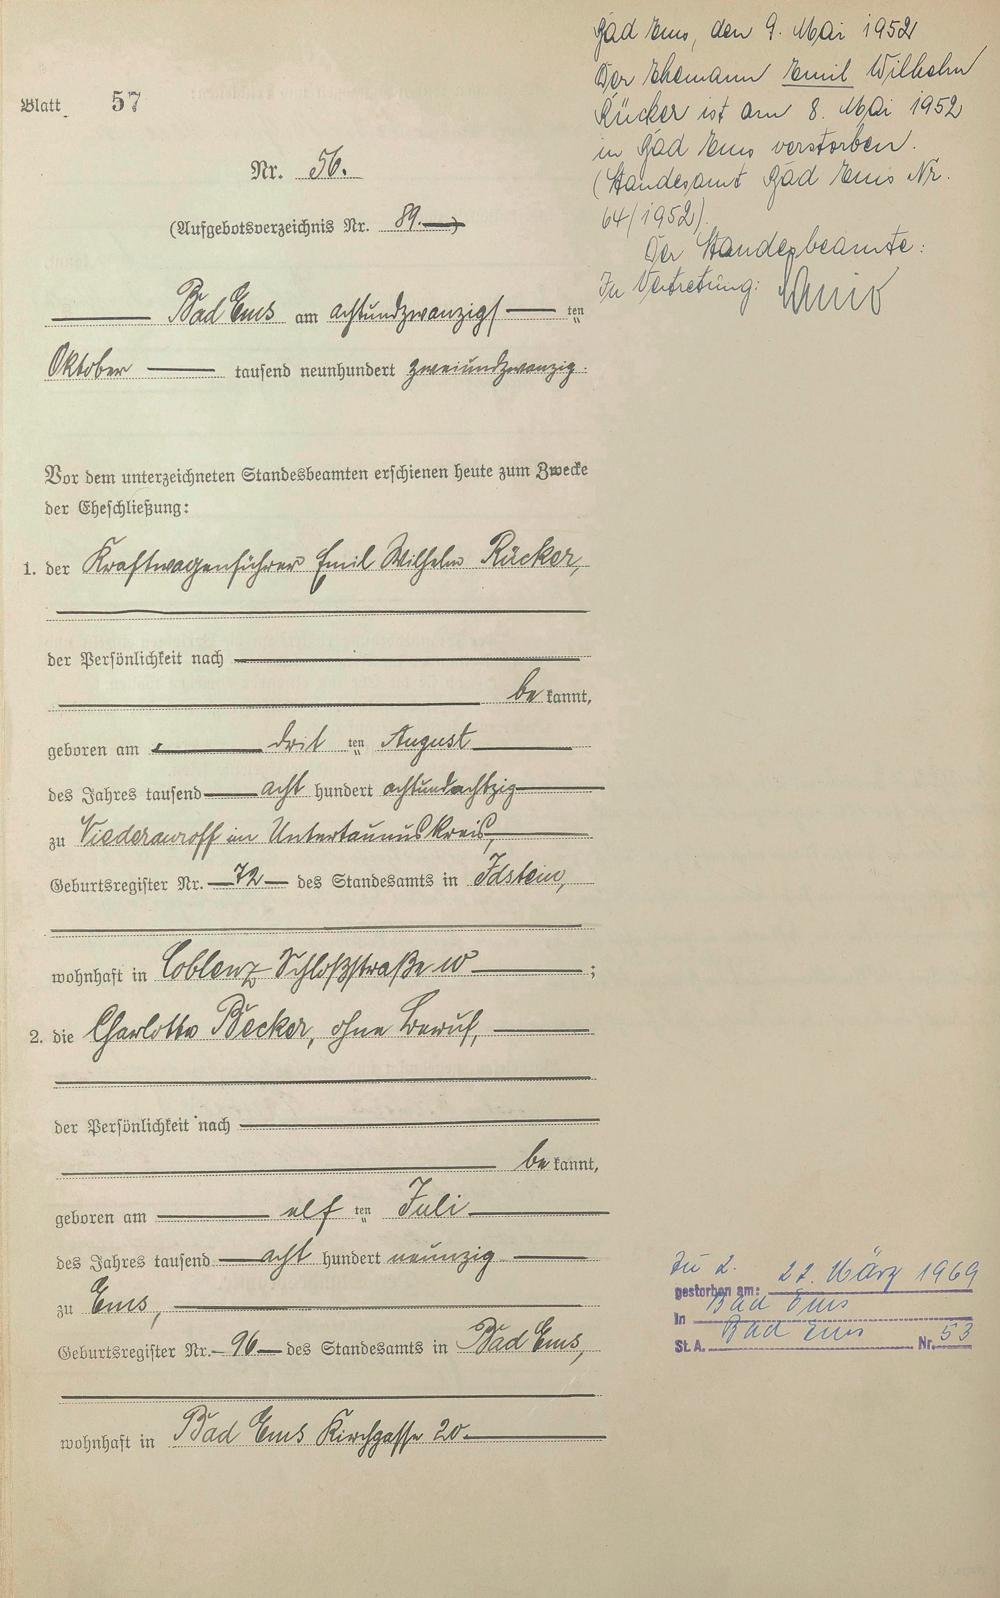 Blatt 57
Nr. 56.
(Aufgebotsverzeichnis Nr. 89.)
Bad Ems am achtundzwanzigsten
Oktober tausend neunhundert zweiundzwanzig.
Vor dem unterzeichneten Standesbeamten erschienen heute zum Zwecke
der Eheschließung:
1. der Kraftwagenführer Emil Wilhelm Rücker,
der Persönlichkeit nach
bekannt,
geboren am dritten August
des Jahres tausend acht hundert achtundachtzig
zu Niederauroff im Untertaunuskreis,
Geburtsregister Nr. 72 des Standesamts in Idstein,
wohnhaft in Coblenz Schloßstraße 10;
2. die Charlotte Becker, ohne Beruf,
der Persönlichkeit nach
bekannt,
geboren am elften Juli
des Jahres tausend acht hundert neunzig
zu Ems,
Geburtsregister Nr. 96 des Standesamts in Bad Ems,
wohnhaft in Bad Ems Kirchgasse 20.
Bad Ems, den 9. Mai 1952
Der Ehemann Emil Wilhelm
Rücker ist am 8. Mai 1952
in Bad Ems verstorben.
(Standesamt Bad Ems Nr.
64/1952).
Der Standesbeamte:
In Vertretung:
Zu 2.
gestorben am: 22. März 1969
in Bad Ems
St.A. Bad Ems Nr. 53